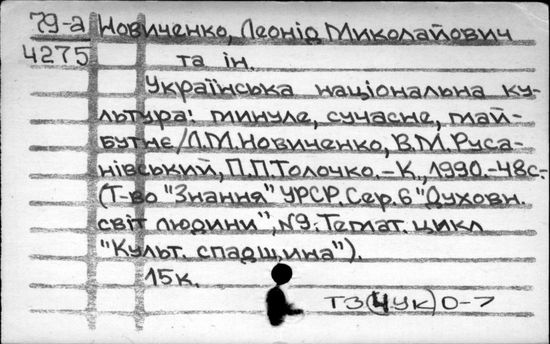 79-а Новиченко, Леонід Миколайович
4275 та ін.
Українська національна ку-
льтура: минуле, сучасне, май-
бутнє/Л.М.Новиченко, В.М.Руса-
нівський, П.П.Толочко.-К., 1990.-48с.-
(Т-во "Знання" УРСР. Сер. 6 "Духовн.
світ людини", №9: Темат. цикл
"Культ. спадщина").
15к.
Т3(4УК)0-7